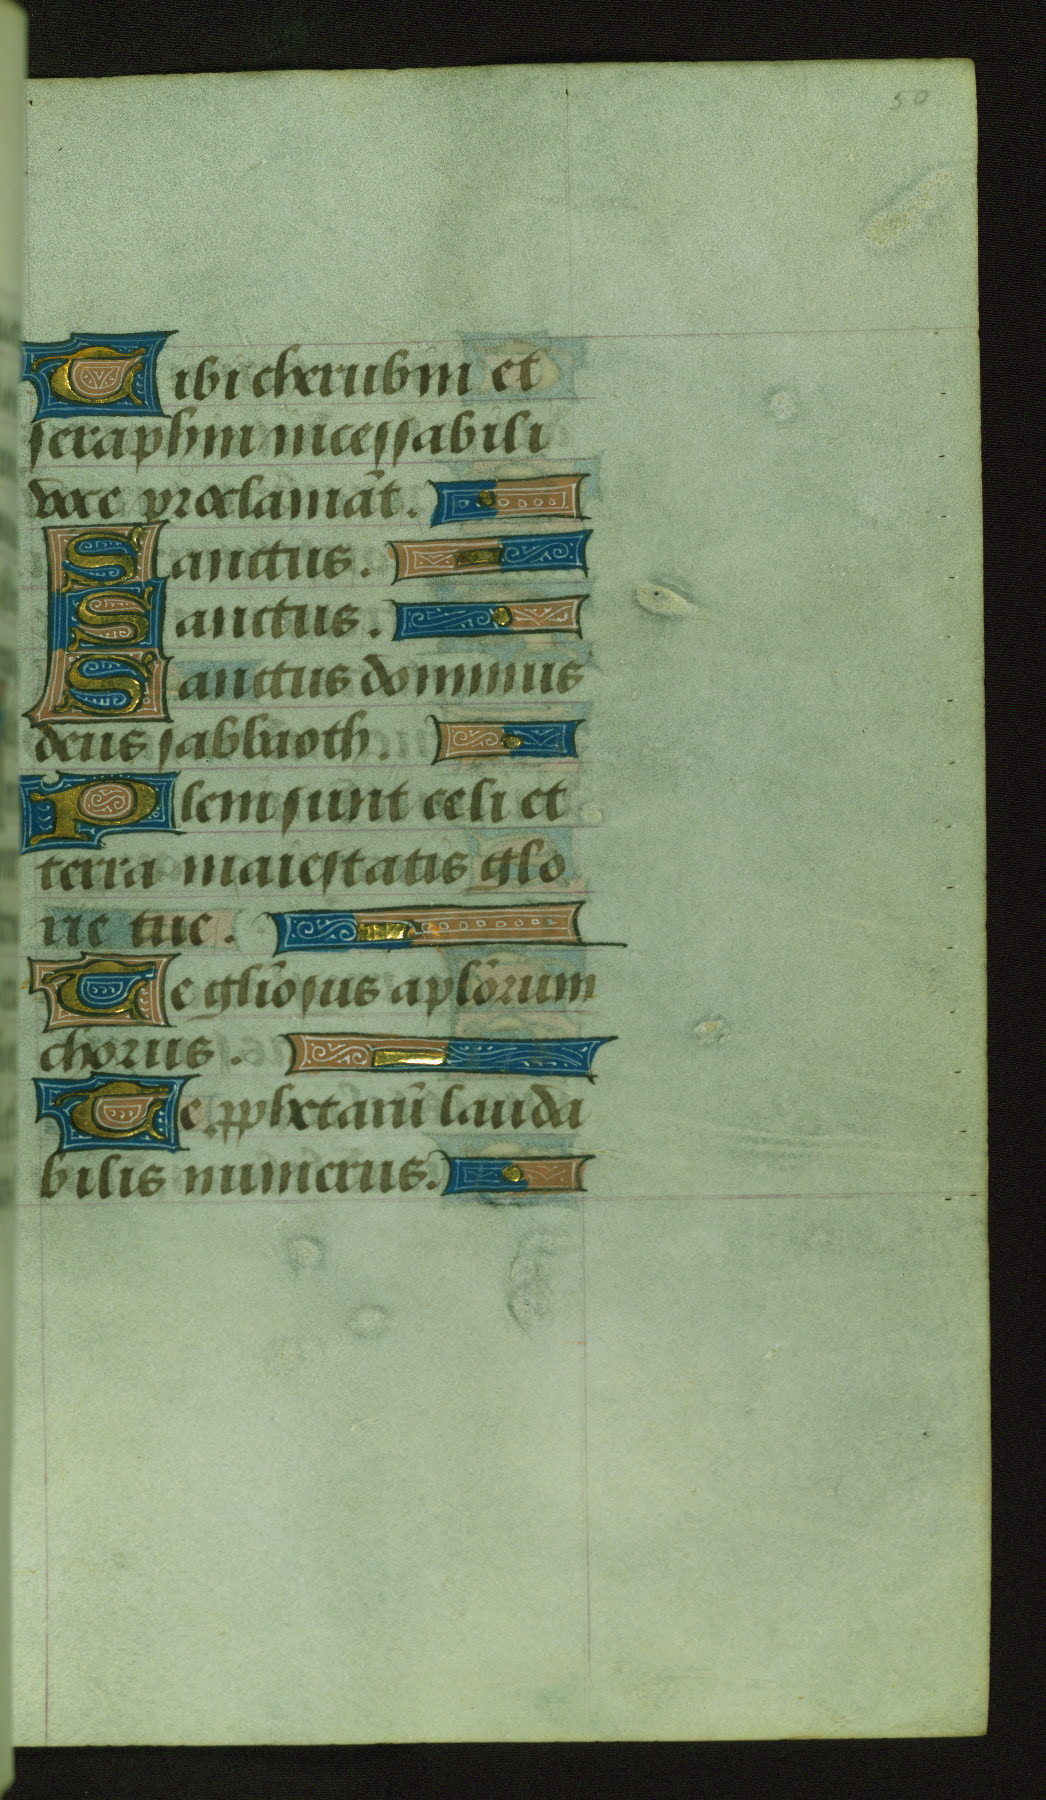 50
Tibi cherubin et
seraphin incessabili
voce proclamāt.
Sanctus.
Sanctus.
Sanctus dominus
deus sabbaoth.
Pleni sunt celi et
terra maiestatis glo
rie tue.
Te gl̄iosus apl̄orum
chorus.
Te ꝓphetarū lauda
bilis numerus.